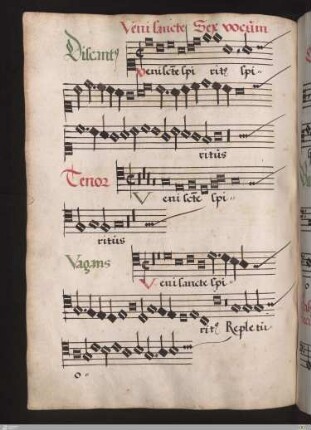 Veni sancte Sex vocum
Discantꝰ
Veni scte spi ritꝰ spi-
ritus
Tenor
Veni scte spi-
ritus
Vagans
Veni sancte spi-
ritꝰ Reple tu-
o-